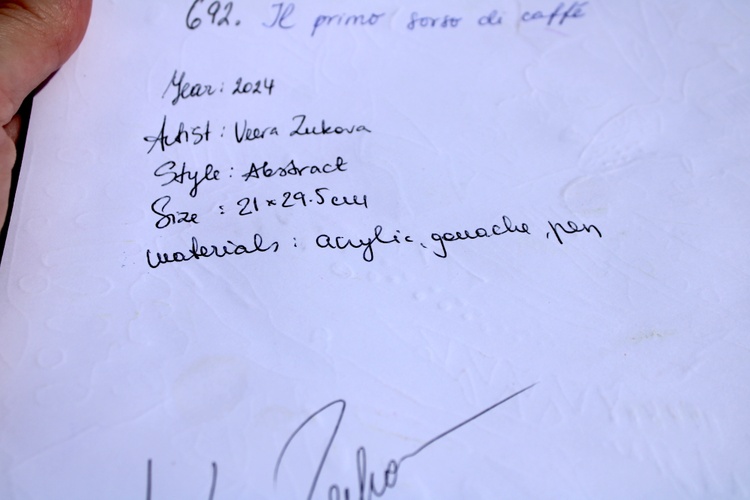 692. Il primo sorso di caffé
Year: 2024
Artist: Veera Zukova
Style: Abstract
Size: 21×29.5cm
materials: acrylic, gouache, pen